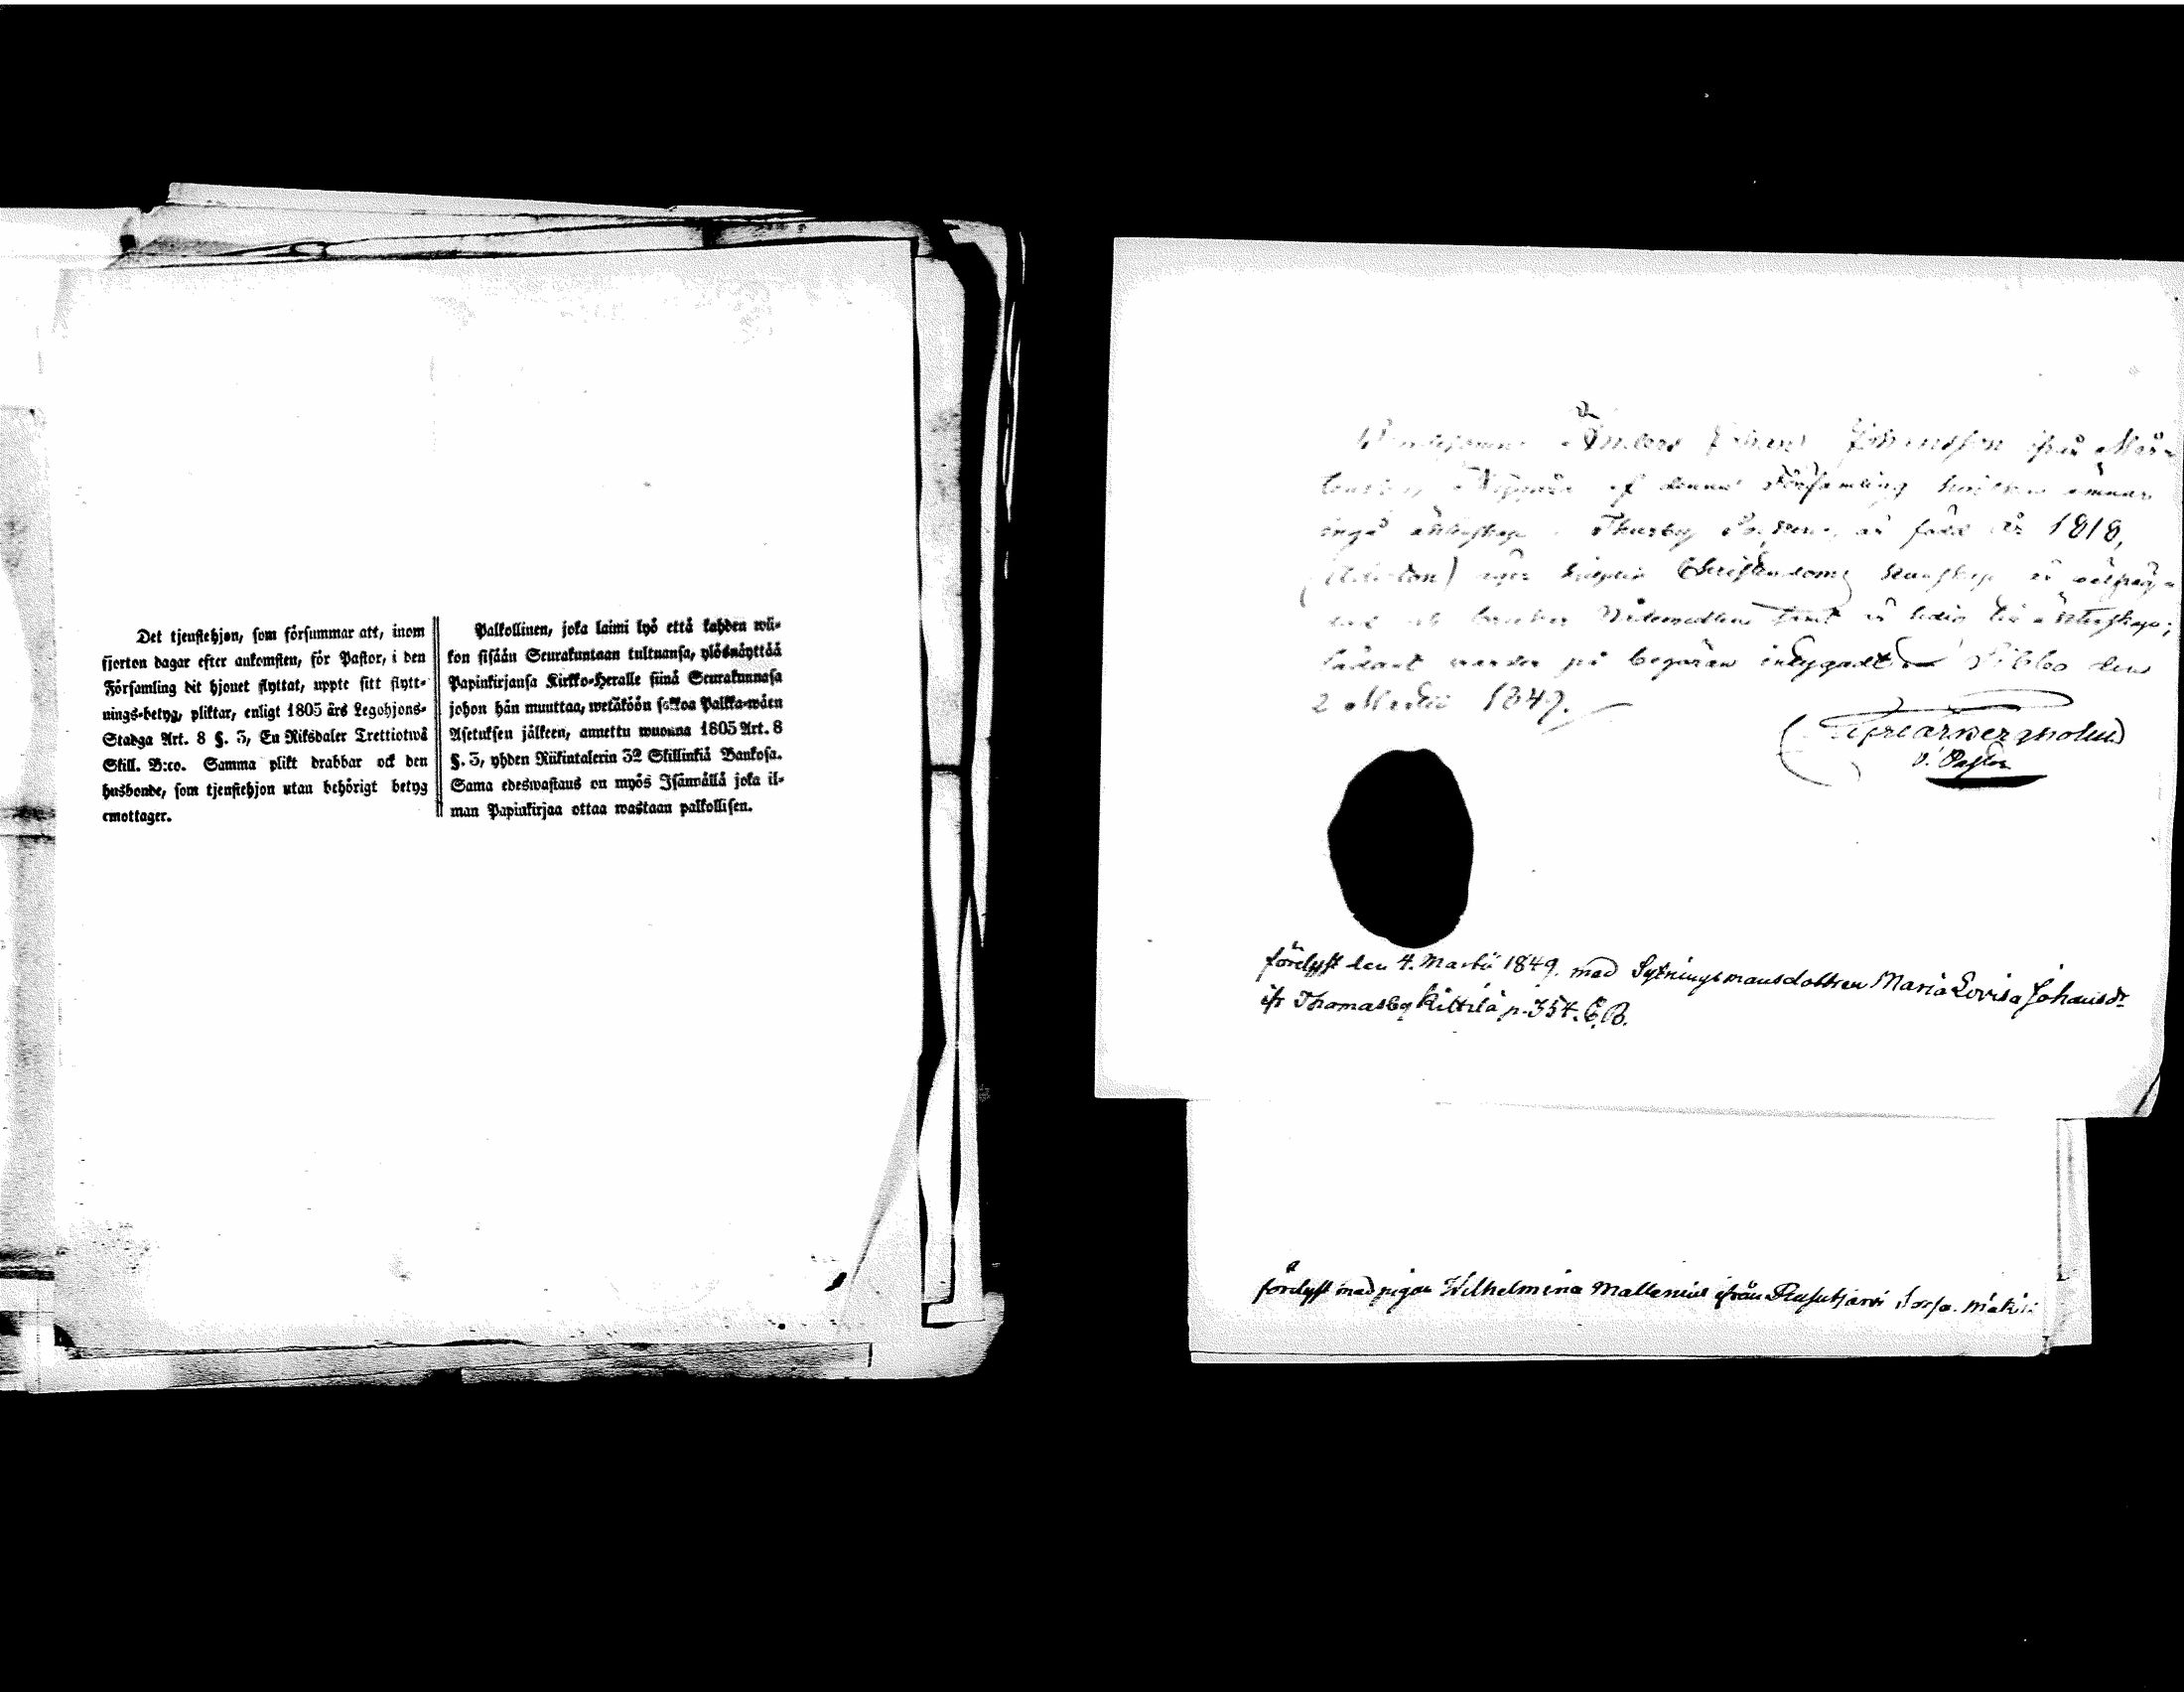 Det tjenstehjon, som försummar att, inom
fjorton dagar efter ankomsten, för Pastor, i den
Församling dit hjonet flyttat, uppte sitt flytt-
nings-betyg, pliktar, enligt 1805 års Legohjons-
Stadga Art. 8 §. 3, En Riksdaler Trettiotwå
Skill. B:co. Samma plikt drabbar ock den
husbonde, som tjenstehjon utan behörigt betyg
emottager.
Palkollinen, joka laimi lyö että kahden wii-
kon sisään Seurakuntaan tultuansa, ylösnäyttää
Papinkirjansa Kirkko-Heralle siinä Seurakunnasa
johon hän muuttaa, wetäköön sakkoa Palkka-wäen
Asetuksen jälkeen, annettu wuonna 1805 Art. 8
§. 3, yhden Riikintalerin 32 Skillinkiä Bankosa.
Sama edeswastaus on myös Isännällä joka il-
man Papinkirjaa ottaa wastaan palkollisen.
Anders Johan Johansson ifrån Mår-
af denna Församling ämnar
ingå äktenskap Thusby är född år 1818,
Christendoms kunskap är
Nådemedlen samt är ledig till äktenskap;
sådant warder på begäran intygadt Sibbo den
2 Martii 1849.
V. Pastor
förelyst den 4. Martii 1849. med Sytningsmansdottren Maria Lovisa Johansdr
ifr Thomasby Kittilä p. 354. C. B.
förelyst med pigan Wilhelmina Mallenius ifrån Rusutjärvi